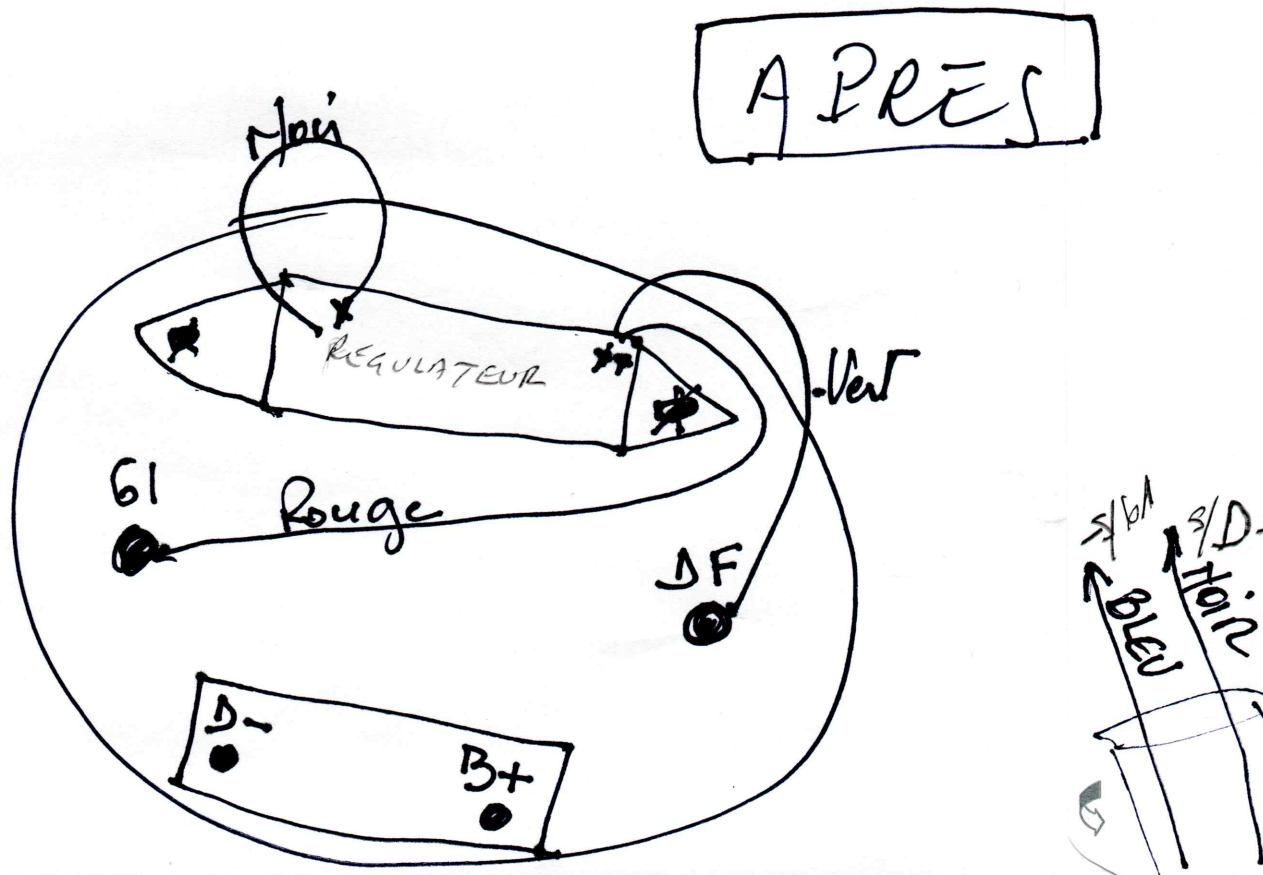 APRES
Noir
REGULATEUR
Vert
61
Rouge
DF
D-
B+
S/61
BLEU
S/D-
NOIR